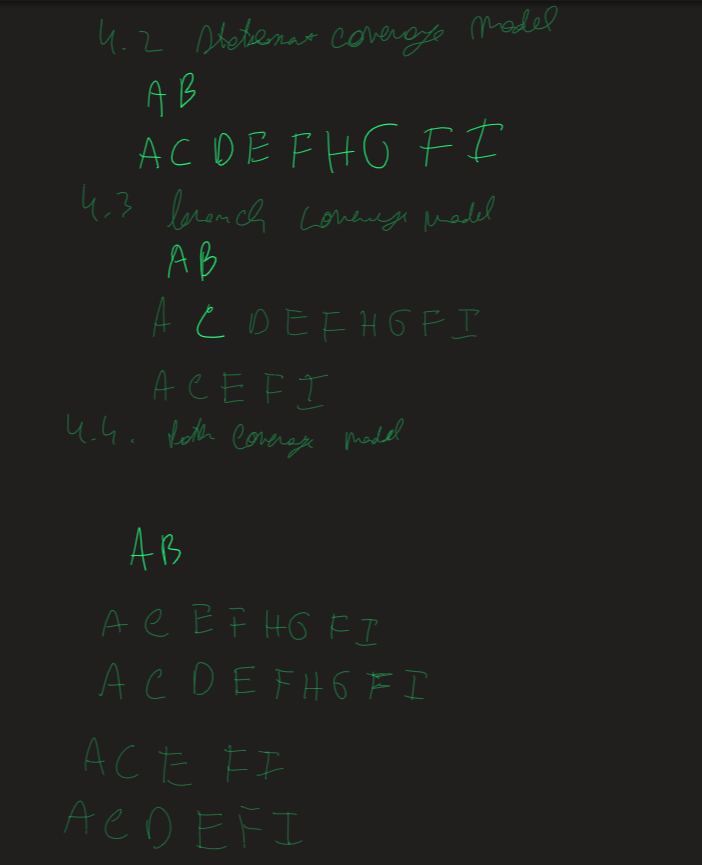 4.2 Statement coverage model
AB
ACDEFHGFI
4.3 branch coverage model
AB
ACDEFHGFI
ACEFI
4.4. Path coverage model
AB
ACEFHGFI
ACDEFHGFI
ACEFI
ACDEFI